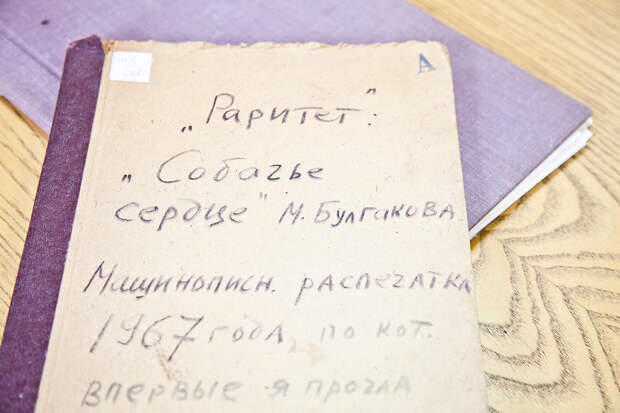 А
„Раритет":
„Собачье
сердце" М. Булгакова
Машинописн. распечатка
1967 года, по кот.
впервые я прочла